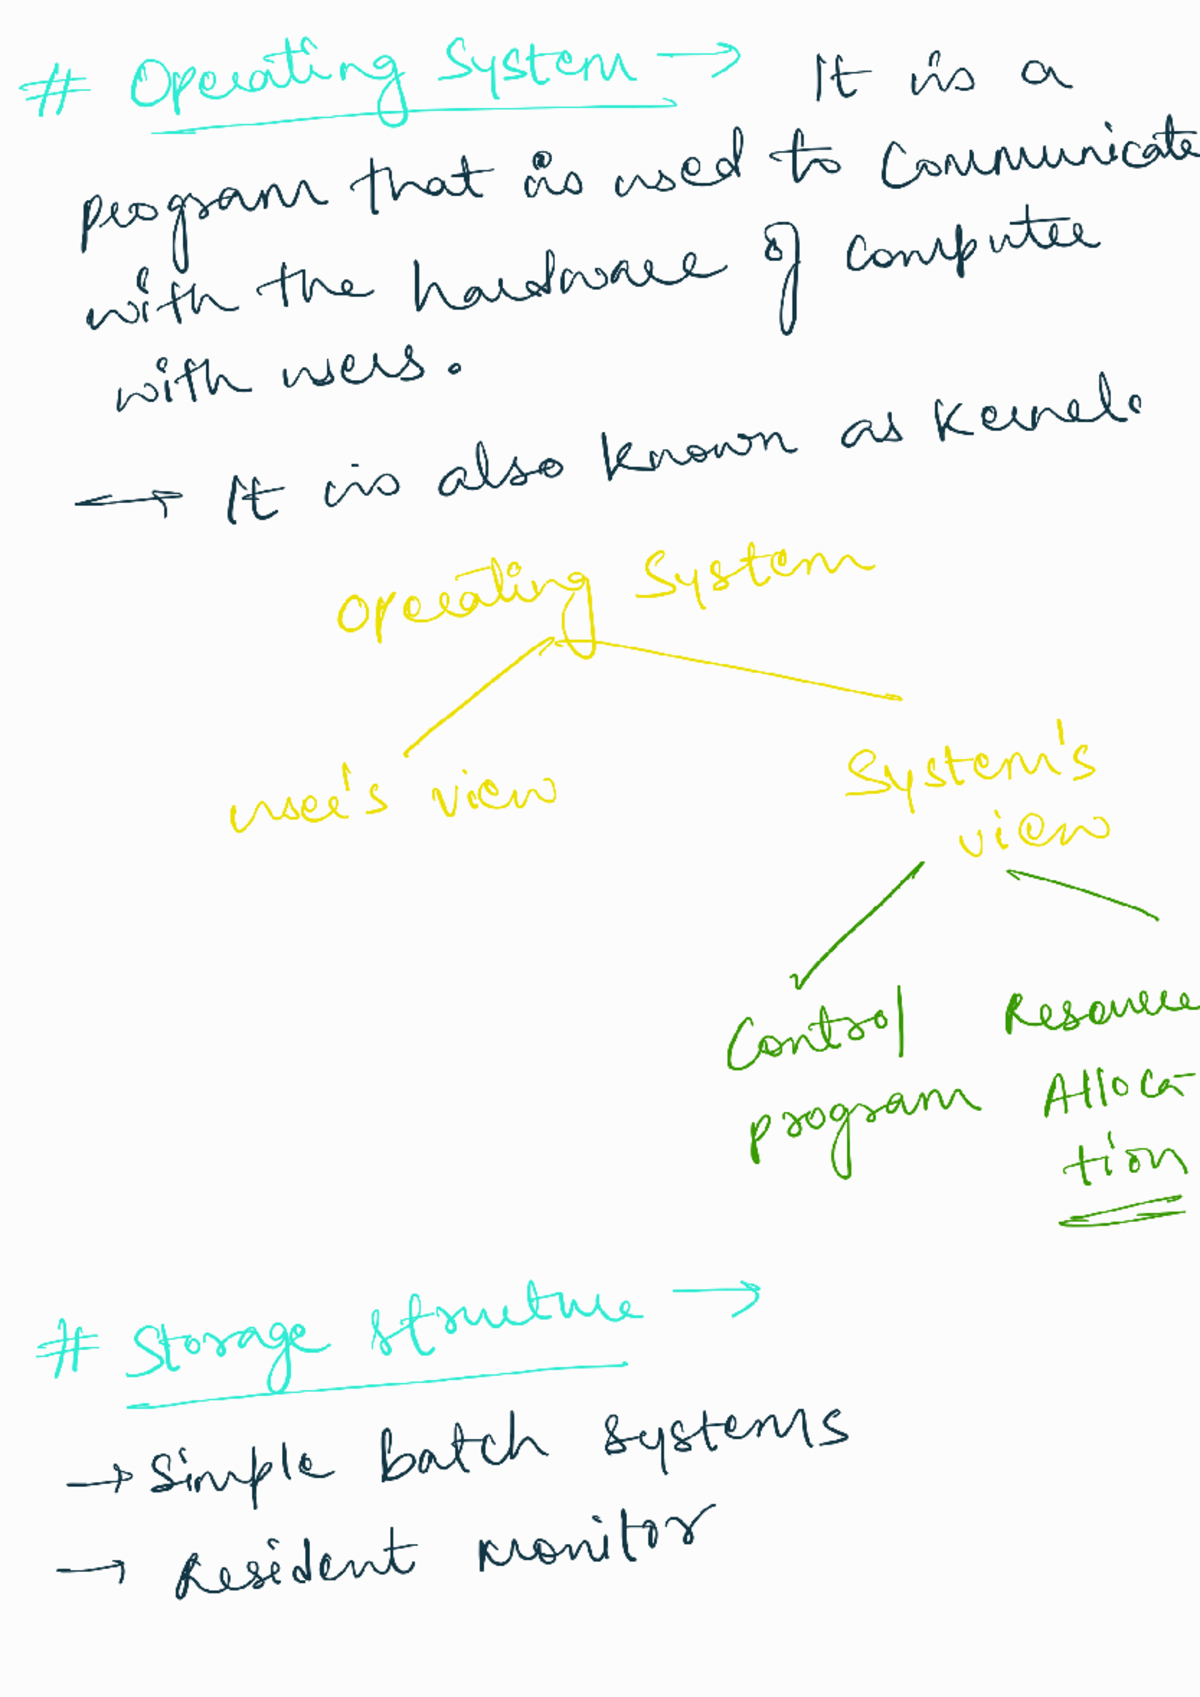 # Operating System → It is a
program that is used to communicate
with the hardware of computer
with users.
→ It is also known as Kernel.
Operating System
user's view
System's
view
Control
program
Resource
Alloca-
tion
# Storage structure →
→ Simple batch systems
→ Resident Monitor